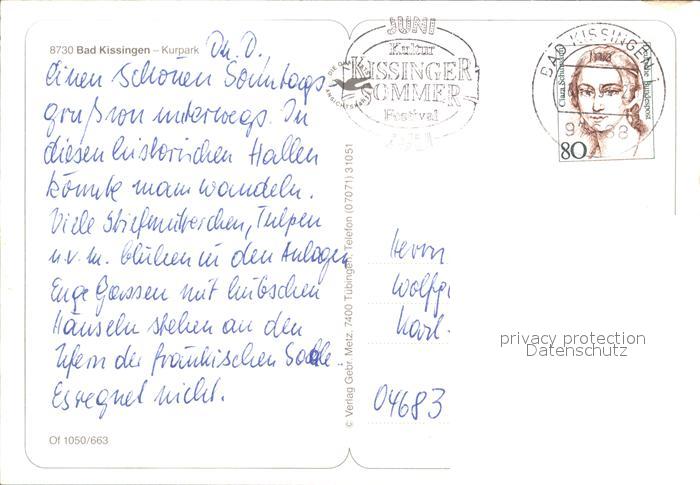 8730 Bad Kissingen – Kurpark Dh. D.
Einen schönen Sonntags-
gruß von unterwegs. In
diesen historischen Hallen
könnte man wandeln.
Viele Stiefmütterchen, Tulpen
u.v.m. blühen in den Anlagen
Enge Gassen mit hübschen
Häuseln stehen an den
Ufern der fränkischen Saale.
Es regnet nicht.
Of 1050/663
© Verlag Gebr. Metz, 7400 Tübingen, Telefon (07071) 31051
JUNI
Kultur
KISSINGER
SOMMER
Festival
JULI
BAD KISSINGEN
Clara Schumann
Deutsche Bundespost
80
Herrn
Wolfg
Karl-
04683
privacy protection
Datenschutz